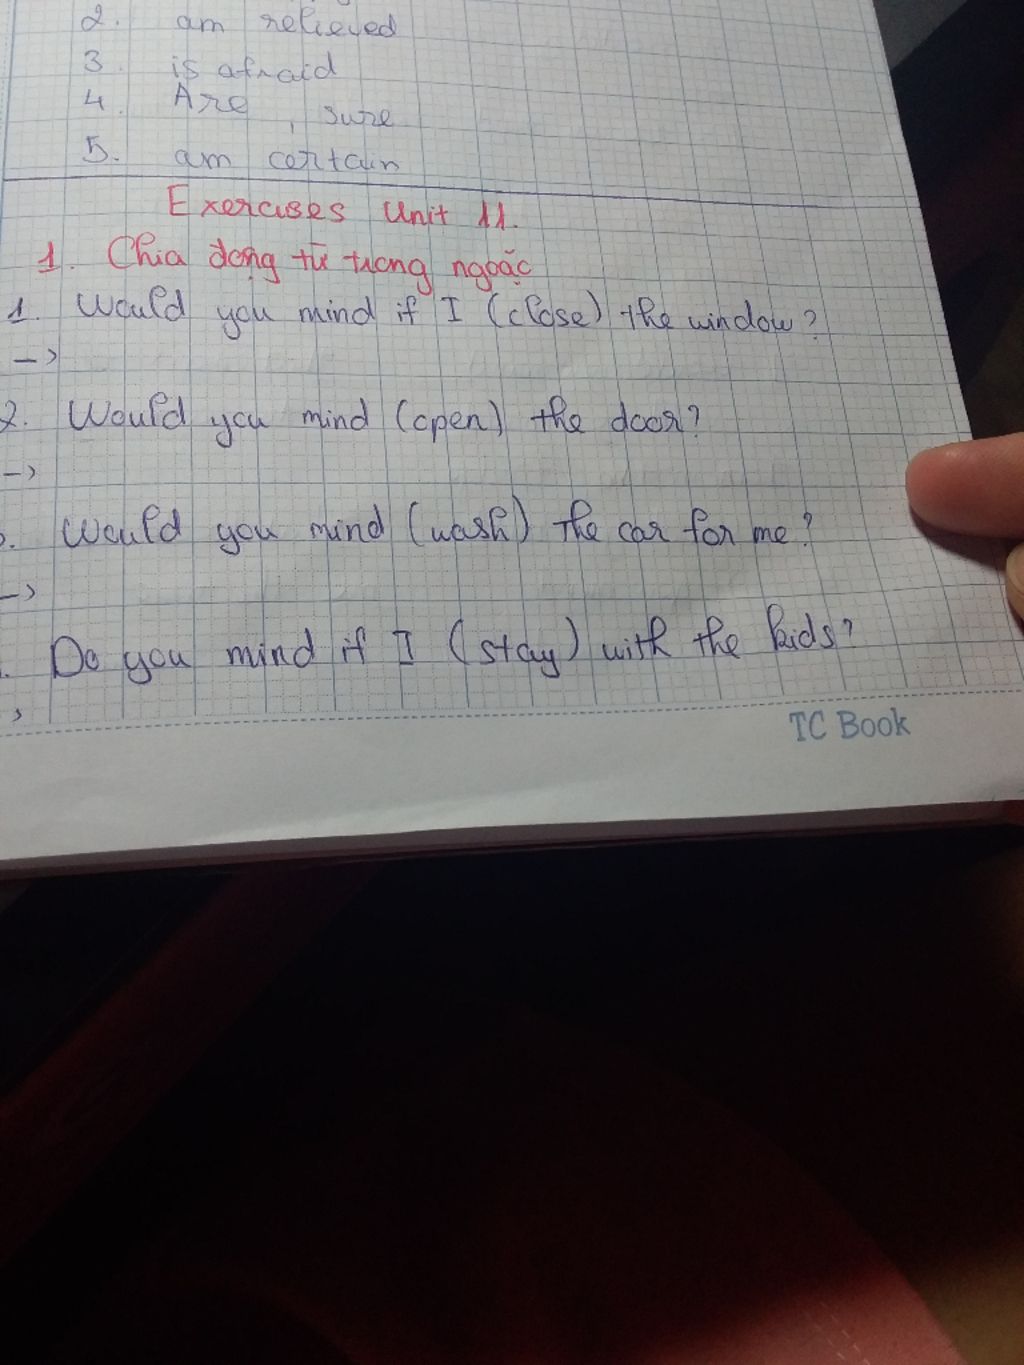 2. am relieved
3. is afraid
4. Are , sure
5. am certain
Exercises Unit 11.
1. Chia động từ trong ngoặc
1. Would you mind if I (close) the window?
->
2. Would you mind (open) the door?
->
. Would you mind (wash) the car for me?
->
. Do you mind if I (stay) with the kids?
>
TC Book